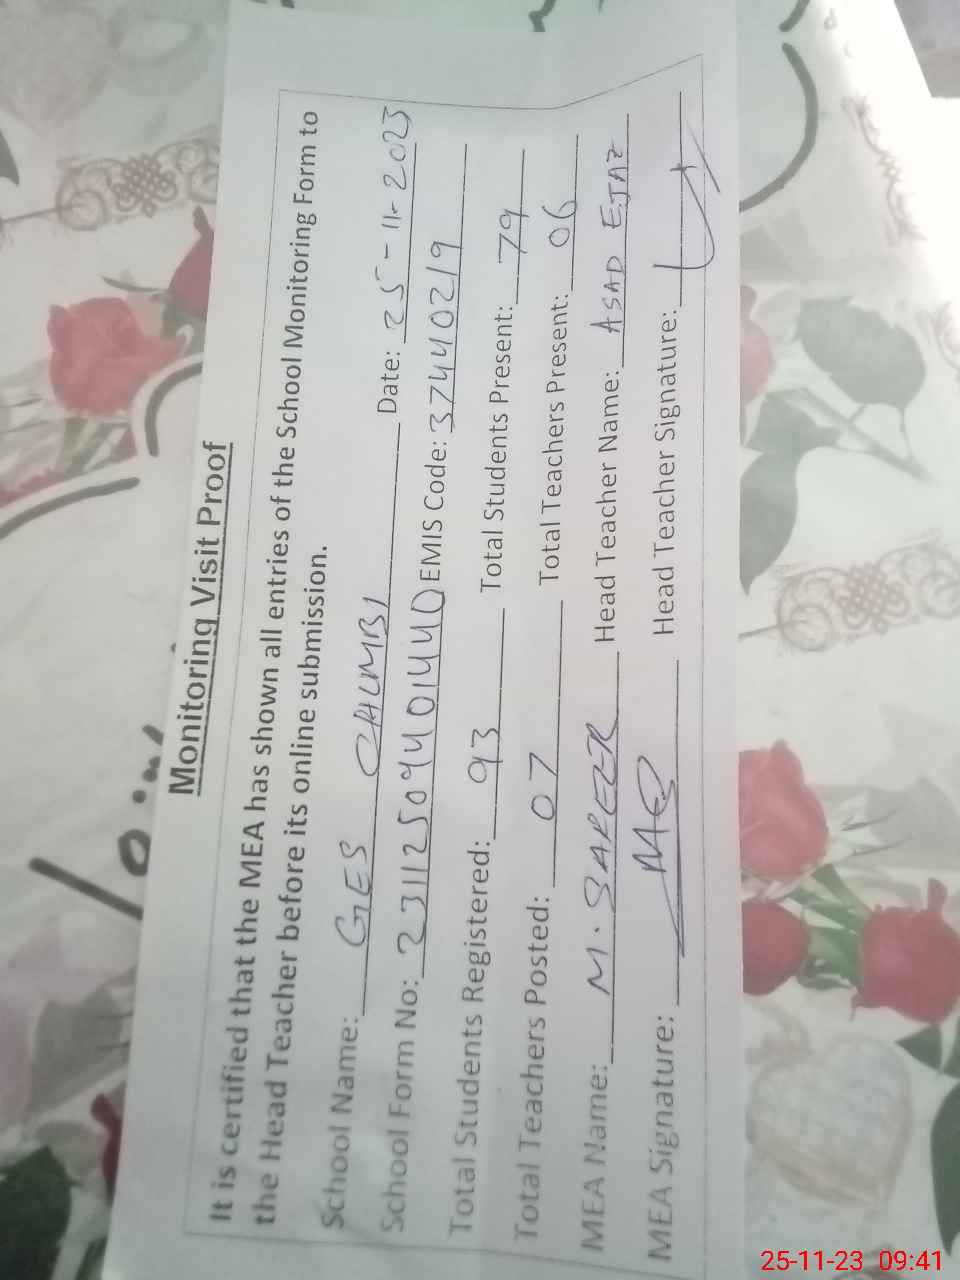 Monitoring Visit Proof
It is certified that the MEA has shown all entries of the School Monitoring Form to
the Head Teacher before its online submission.
School Name: GES CHUMBI Date: 25-11-2023
School Form No: 231125094401440 EMIS Code: 37440219
Total Students Registered: 93 Total Students Present: 79
Total Teachers Posted: 07 Total Teachers Present: 06
MEA Name: M. Head Teacher Name: ASAD EJAZ
MEA Signature: Head Teacher Signature:
25-11-23 09:41